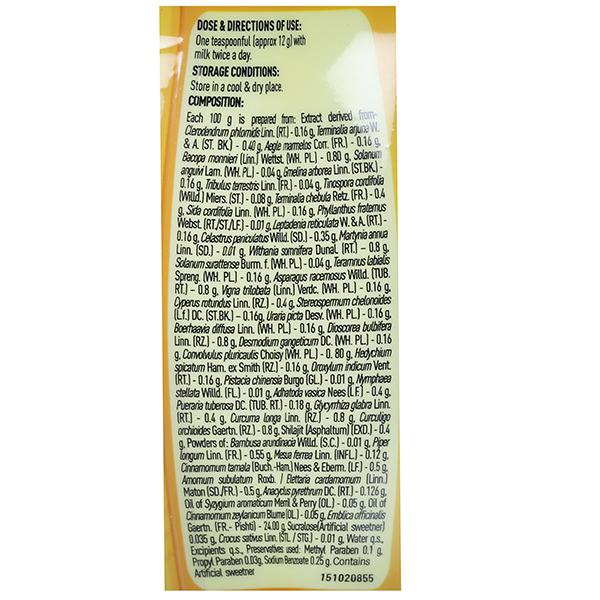 DOSE & DIRECTIONS OF USE:
One teaspoonful (approx 12 g) with
milk twice a day.
STORAGE CONDITIONS:
Store in a cool & dry place.
COMPOSITION:
Each 100 g is prepared from: Extract derived from-
Clerodendrum phlomidis Linn. (RT.) - 0.16 g, Terminalia arjuna W.
& A. (ST. BK.) - 0.40 g, Aegle marmelos Corr. (FR.) - 0.16 g,
Bacopa monnieri (Linn.) Wettst. (WH. PL.) - 0.80 g, Solanum
anguivi Lam. (WH. PL.) - 0.04 g, Gmelina arborea Linn. (ST.BK.) -
0.16 g, Tribulus terrestris Linn. (FR.) - 0.04 g, Tinospora cordifolia
(Willd.) Miers. (ST.) - 0.08 g, Terminalia chebula Retz. (FR.) - 0.4
g, Sida cordifolia Linn. (WH. PL.) - 0.16 g, Phyllanthus fraternus
Webst. (RT./ST./LF.) - 0.01 g, Leptadenia reticulata W. & A. (RT.) -
0.16 g, Celastrus paniculatus Willd. (SD.) - 0.35 g, Martynia annua
Linn. (SD.) - 0.01 g, Withania somnifera Dunal. (RT.) – 0.8 g,
Solanum surattense Burm. f. (WH. PL.) - 0.04 g, Teramnus labialis
Spreng. (WH. PL.) - 0.16 g, Asparagus racemosus Willd. (TUB.
RT.) – 0.8 g, Vigna trilobata (Linn.) Verdc. (WH. PL.) - 0.16 g,
Cyperus rotundus Linn. (RZ.) - 0.4 g, Stereospermum chelonoides
(L.f.) DC. (ST.BK.) – 0.16g, Uraria picta Desv. (WH. PL.) - 0.16 g,
Boerhaavia diffusa Linn. (WH. PL.) - 0.16 g, Dioscorea bulbifera
Linn. (RZ.) - 0.8 g, Desmodium gangeticum DC. (WH. PL.) - 0.16
g, Convolvulus pluricaulis Choisy (WH. PL.) - 0. 80 g, Hedychium
spicatum Ham. ex Smith (RZ.) - 0.16 g, Oroxylum indicum Vent.
(RT.) - 0.16 g, Pistacia chinensia Burgo (GL.) - 0.01 g, Nymphaea
stellata Willd. (FL.) - 0.01 g, Adhatoda vasica Nees (LF.) - 0.4 g,
Pueraria tuberosa DC. (TUB. RT.) - 0.18 g, Glycyrrhiza glabra Linn.
(RT.) - 0.4 g, Curcuma longa Linn. (RZ.) - 0.8 g, Curculigo
orchioides Gaertn. (RZ.) - 0.8 g, Shilajit (Asphaltum) (EXD.) - 0.4
g, Powders of:- Bambusa arundinacia Willd. (S.C.) - 0.01 g, Piper
longum Linn. (FR.) - 0.55 g, Mesua ferrea Linn. (INFL.) - 0.12 g,
Cinnamomum tamala (Buch.-Ham.) Nees & Eberm. (LF.) - 0.5 g,
Amomum subulatum Roxb. / Elettaria cardamomum (Linn.)
Maton (SD./FR.) - 0.5 g, Anacyclus pyrethrum DC. (RT.) - 0.126 g,
Oil of Syzygium aromaticum Merril & Perry (OL.) - 0.05 g, Oil of
Cinnamomum zeylanicum Blume (OL.) - 0.05 g, Emblica officinalis
Gaertn. (FR. - Pishti) - 24.00 g, Sucralose(Artificial sweetner)
0.035 g, Crocus sativus Linn. (STL / STG.) - 0.01 g, Water q.s.,
Excipients q.s., Preservatives used: Methyl Paraben 0.1 g,
Propyl Paraben 0.03g, Sodium Benzoate 0.25 g. Contains
Artificial sweetner
151020855